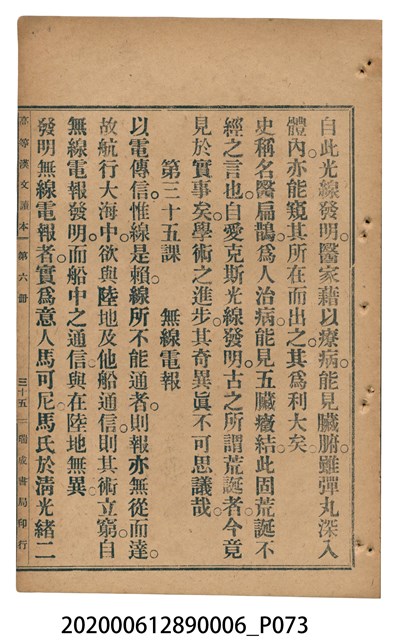 自此光線發明。醫家藉以療病。能見臟腑。雖彈丸深入
體內。亦能窺其所在而出之。其爲利大矣。
史稱名醫扁鵲。爲人治病。能見五臟癥結。此固荒誕不
經之言也。自愛克斯光線發明。古之所謂荒誕者。今竟
見於實事矣。學術之進步。其奇異眞不可思議哉。
第三十五課　無線電報
以電傳信。惟線是賴。線所不能通者。則報亦無從而達。
故航行大海中。欲與陸地及他船通信。則其術立窮。自
無線電報發明。而船中之通信。與在陸地無異。
發明無線電報者。實爲意人馬可尼。馬氏於淸光緒二
高等漢文讀本　第六册　三十五　瑞成書局印行
202000612890006_P073